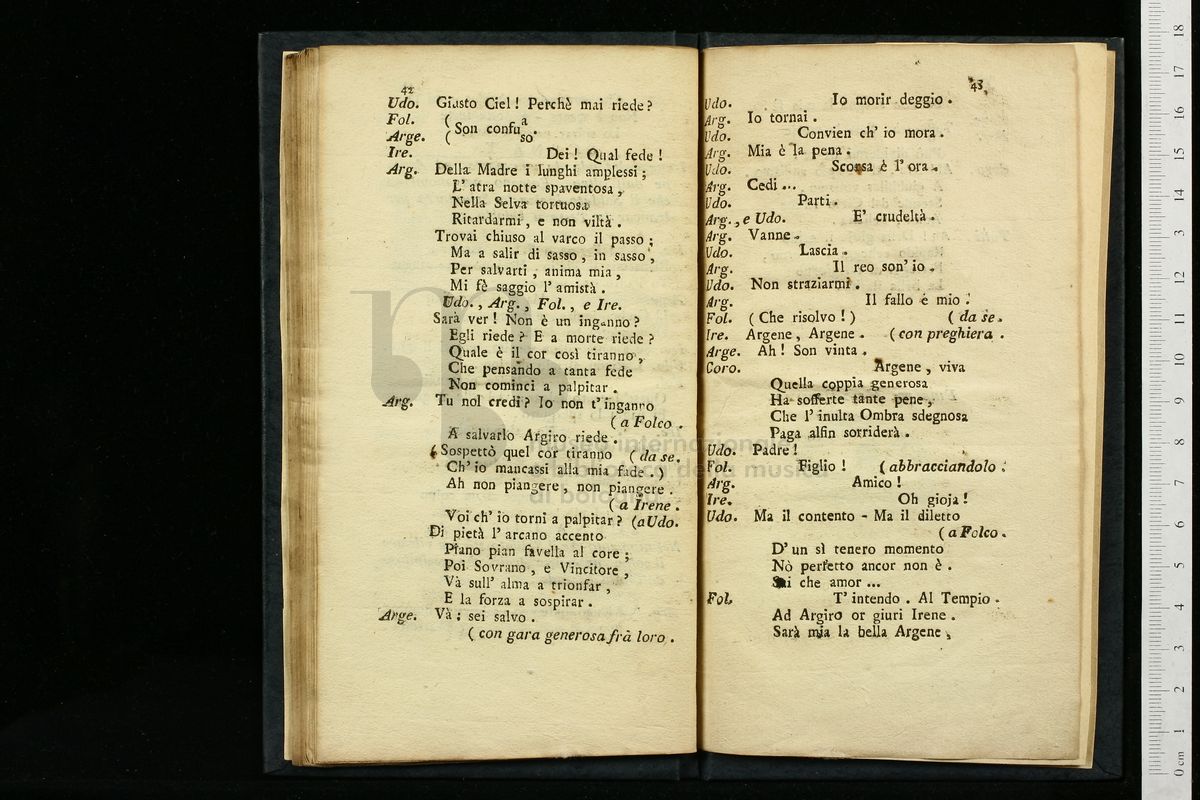 42
Udo. Giusto Ciel! Perchè mai riede?
Fol.
Arge. ( Son confu a so.
Ire. Dei! Qual fede!
Arg. Della Madre i lunghi amplessi;
L' atra notte spaventosa,
Nella Selva tortuosa
Ritardarmi, e non viltà.
Trovai chiuso al varco il passo;
Ma a salir di sasso, in sasso,
Per salvarti, anima mia,
Mi fè saggio l' amistà.
Udo., Arg., Fol., e Ire.
Sarà ver! Non è un inganno?
Egli riede? E a morte riede?
Quale è il cor così tiranno,
Che pensando a tanta fede
Non cominci a palpitar.
Arg. Tu nol credi? Io non t' inganno
( a Folco.
A salvarlo Argiro riede.
( Sospettò quel cor tiranno ( da se.
Ch' io mancassi alla mia fede.)
Ah non piangere, non piangere.
( a Irene.
Voi ch' io torni a palpitar? (a Udo.
Di pietà l' arcano accento
Piano pian favella al core;
Poi Sovrano, e Vincitore,
Và sull' alma a trionfar,
E la forza a sospirar.
Arge. Và: sei salvo.
( con gara generosa frà loro.
43
Udo. Io morir deggio.
Arg. Io tornai.
Udo. Convien ch' io mora.
Arg. Mia è la pena.
Udo. Scorsa è l' ora.
Arg. Cedi...
Udo. Parti.
Arg., e Udo. E' crudeltà.
Arg. Vanne.
Udo. Lascia.
Arg. Il reo son' io.
Udo. Non straziarmi.
Arg. Il fallo é mio.
Fol. ( Che risolvo! ) ( da se.
Ire. Argene, Argene. ( con preghiera.
Arge. Ah! Son vinta.
Coro. Argene, viva
Quella coppia generosa
Ha sofferte tante pene,
Che l' inulta Ombra sdegnosa
Paga alfin sorriderà.
Udo. Padre!
Fol. Figlio! ( abbracciandolo.
Arg. Amico!
Ire. Oh gioja!
Udo. Ma il contento - Ma il diletto
( a Folco.
D' un sì tenero momento
Nò perfetto ancor non è.
Sai che amor...
Fol. T' intendo. Al Tempio.
Ad Argiro or giuri Irene.
Sarà mia la bella Argene,
museo internazionale
e biblioteca della musica
di bologna
0 cm 1 2 3 4 5 6 7 8 9 10 11 12 13 14 15 16 17 18